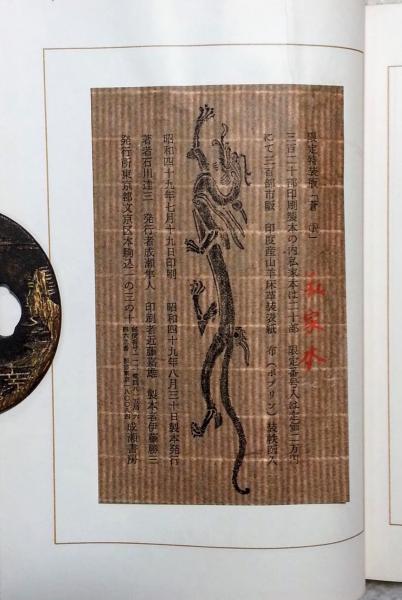 限定特装版「蒼
三百二十部印刷製本の内私家本は二十部 限定番号入 定価二万円
にて三百部市販 印度産山羊床革装表紙 布(ポプリン)装帙函入
私家本
昭和四十九年七月十九日印刷 昭和四十九年八月三十日製本発行
著者石川達三 発行者成瀬隼人 印刷者近藤 雄 製本者伊藤勝三
発行所東京都文京区本駒込二の三の十 成瀬書房